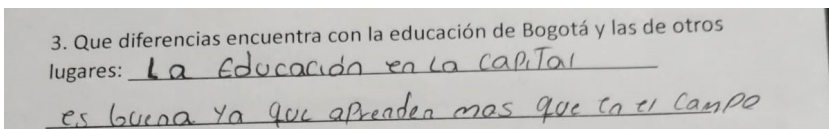 3. Que diferencias encuentra con la educación de Bogotá y las de otros
lugares: La Educación en la capital
es buena ya que aprenden mas que en el campo